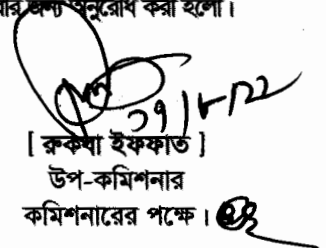 জন্য অনুরোধ করা হলো।
২১/৮/২২
[ রুকবা ইফফাত ]
উপ-কমিশনার
কমিশনারের পক্ষে।